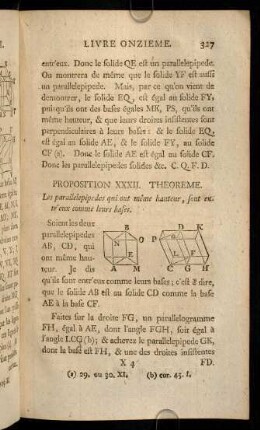 LIVRE ONZIEME. 327
entr'eux. Donc le solide QE est un parallelepipede.
On montrera de même que le solide YF est aussi
un parallelepipede. Mais, par ce qu'on vient de
demontrer, le solide EQ, est égal au solide FY,
puisqu'ils ont des bases égales MK, PS, qu'ils ont
même hauteur, & que leurs droites insistentes sont
perpendiculaires à leurs bases: & le solide EQ,
est égal au solide AE, & le solide FY, au solide
CF (a). Donc le solide AE est égal au solide CF.
Donc les parallelepipedes solides &c. C. Q. F. D.
PROPOSITION XXXII. THEOREME.
Les parallelepipedes qui ont même hauteur, sont en-
tr'eux comme leurs bases.
Soient les deux
parallelepipedes
AB, CD, qui
ont même hau-
teur. Je dis
B O P D K
N E L F
A M C G H
qu'ils sont entr'eux comme leurs bases; c'est à dire,
que le solide AB est au solide CD comme la base
AE à la base CF.
Faites sur la droite FG, un parallelogramme
FH, égal à AE, dont l'angle FGH, soit égal à
l'angle LCG (b); & achevez le parallelepipede GK,
dont la base est FH, & une des droites insistentes
X 4 FD.
(a) 29. ou 30. XI. (b) cor. 45. I.